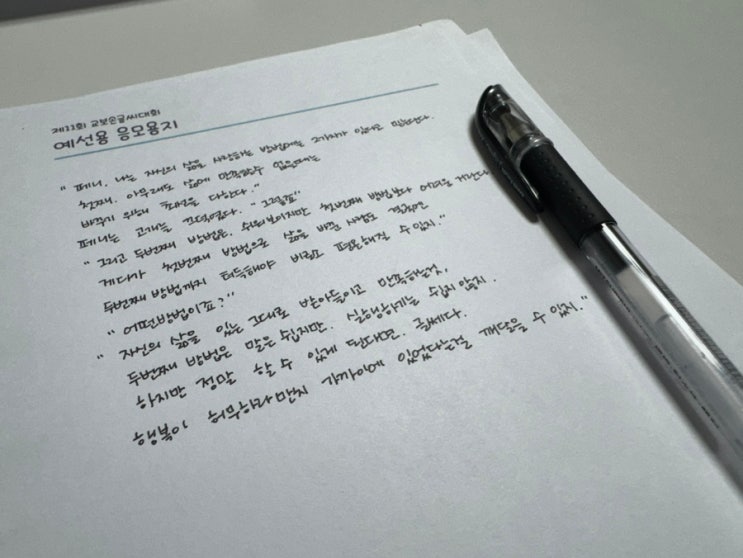 제11회 교보손글씨대회
예선용 응모용지
"페니, 나는 자신의 삶을 사랑하는 방법에는 2가지가 있다고 믿는단다.
첫째, 아무래도 삶에 만족할수 없을때는
바꾸기 위해 최선을 다한다."
페니는 고개를 끄덕였다. "그렇죠"
"그리고 두번째 방법은, 쉬워보이지만 첫번째 방법보다 어려운 거란다
게다가 첫번째 방법으로 삶을 바꾼 사람도 결국엔
두번째 방법까지 터득해야 비로소 평온해질 수 있지."
"어떤방법이죠?"
"자신의 삶을 있는 그대로 받아들이고 만족하는것,
두번째 방법은 말은 쉽지만, 실행하기는 쉽지 않지.
하지만 정말 할 수 있게 된다면, 글쎄다.
행복이 허무하리만치 가까이에 있었다는걸 깨달을 수 있지."